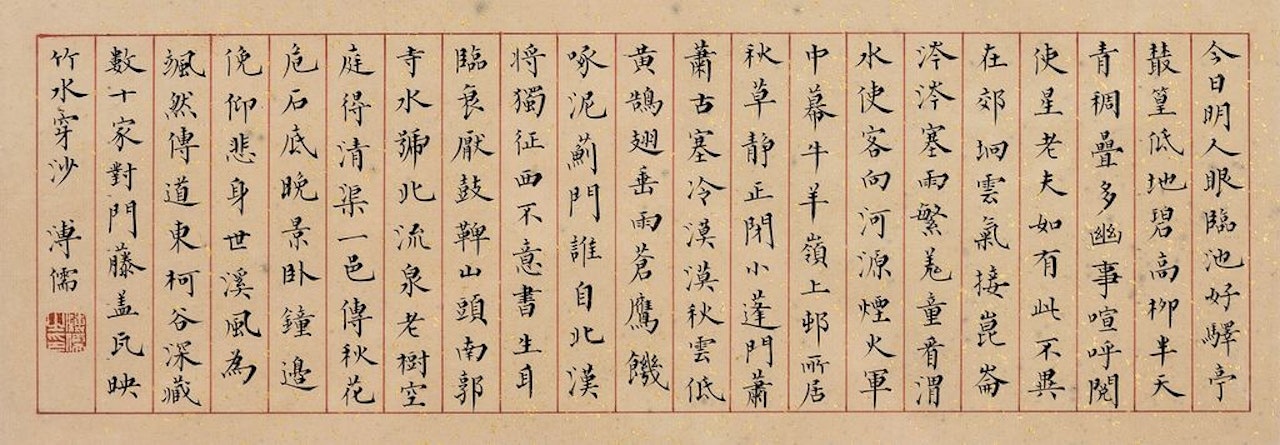 今日明人眼臨池好驛亭
叢篁低地碧高柳半天
青稠疊多幽事喧呼閱
使星老夫如有此不異
在郊坰雲氣接崑崙
涔涔塞雨繁羌童看渭
水使客向河源煙火軍
中幕牛羊嶺上邨所居
秋草靜正閉小蓬門蕭
蕭古塞冷漠漠秋雲低
黃鵠翅垂雨蒼鷹饑
啄泥薊門誰自北漢
将獨征西不意書生耳
臨衰厭鼓鞞山頭南郭
寺水號北流泉老樹空
庭得清渠一邑傳秋花
危石底晚景臥鐘邊
俛仰悲身世溪風為
颯然傳道東柯谷深藏
數十家對門藤盖瓦映
竹水穿沙 溥儒
溥儒之印